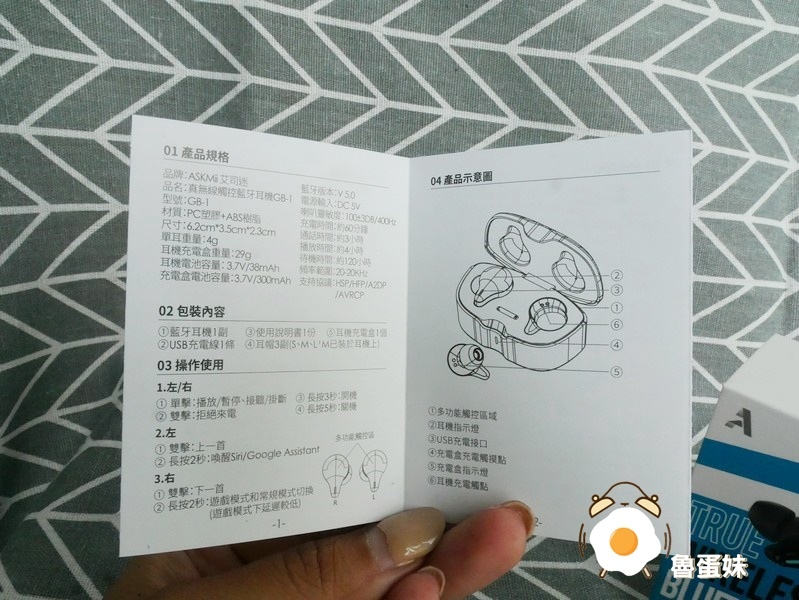 01 產品規格
品牌:ASKMii 艾司迷
品名:真無線觸控藍牙耳機GB-1
型號:GB-1
材質:PC塑膠+ABS樹脂
尺寸:6.2cm*3.5cm*2.3cm
單耳重量:4g
耳機充電盒重量:29g
耳機電池容量:3.7V/38mAh
充電盒電池容量:3.7V/300mAh
藍牙版本:V 5.0
電源輸入:DC 5V
喇叭靈敏度:100±3DB/400Hz
充電時間:約60分鐘
通話時間:約3小時
播放時間:約4小時
待機時間:約120小時
頻率範圍:20-20KHz
支持協議:HSP/HFP/A2DP
/AVRCP
02 包裝內容
①藍牙耳機1副 ③使用說明書1份 ⑤耳機充電盒1個
②USB充電線1條 ④耳帽3副(S、M、L'M已裝於耳機上)
03 操作使用
1.左/右
① 單擊:播放/暫停、接聽/掛斷 ③ 長按3秒:開機
② 雙擊:拒絕來電 ④ 長按5秒:關機
2.左
① 雙擊:上一首
② 長按2秒:喚醒Siri/Google Assistant
多功能觸控區
3.右
① 雙擊:下一首
② 長按2秒:遊戲模式和常規模式切換
(遊戲模式下延遲較低)
R L
-1-
04 產品示意圖
②
③
①
⑥
④
⑤
①多功能觸控區域
②耳機指示燈
③USB充電接口
④充電盒充電觸摸點
⑤充電盒指示燈
⑥耳機充電觸點
2-
TRUE
WIRELES
BLUE
魯蛋妹